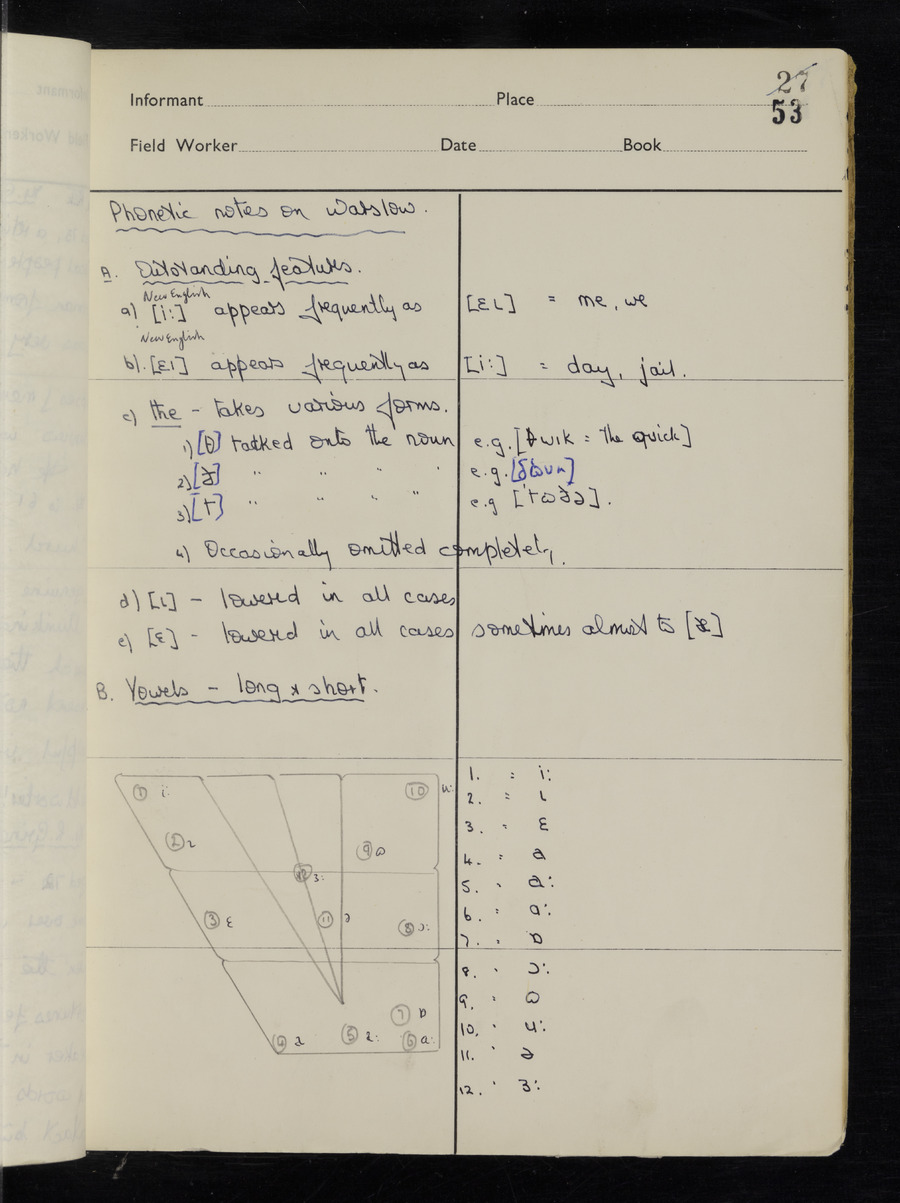 27
53
Informant Place
Field Worker Date Book
Phonetic notes on Warslow.
A. Outstanding features.
New English
a) [i:] appears frequently as [ɛɩ] = me, we
New English
b). [ɛɩ] appears frequently as [i:] = day, jail.
c) the - takes various forms.
1) [θ] tacked onto the noun e.g. [θwɩk = the quick]
2) [ð] " " " " e.g.
3) [t] " " " " e.g
4) Occasionally omitted completely.
d) [ɩ] - lowered in all cases
e) [ɛ] - lowered in all cases sometimes almost to [æ]
B. Vowels - long & short.
① i: ⑩ u:
② ɩ ⑨ ɷ
⑫ ɜ:
③ ɛ ⑪ ə ⑧ ɔ:
⑦ ɒ
④ a ⑤ a: ⑥ ɑ:
1. = i:
2. = ɩ
3. = ɛ
4. = a
5. " a:
6. " ɑ:
7. " ɒ
8. " ɔ:
9. " ɷ
10. " u:
11. " ə
12. " ɜ: